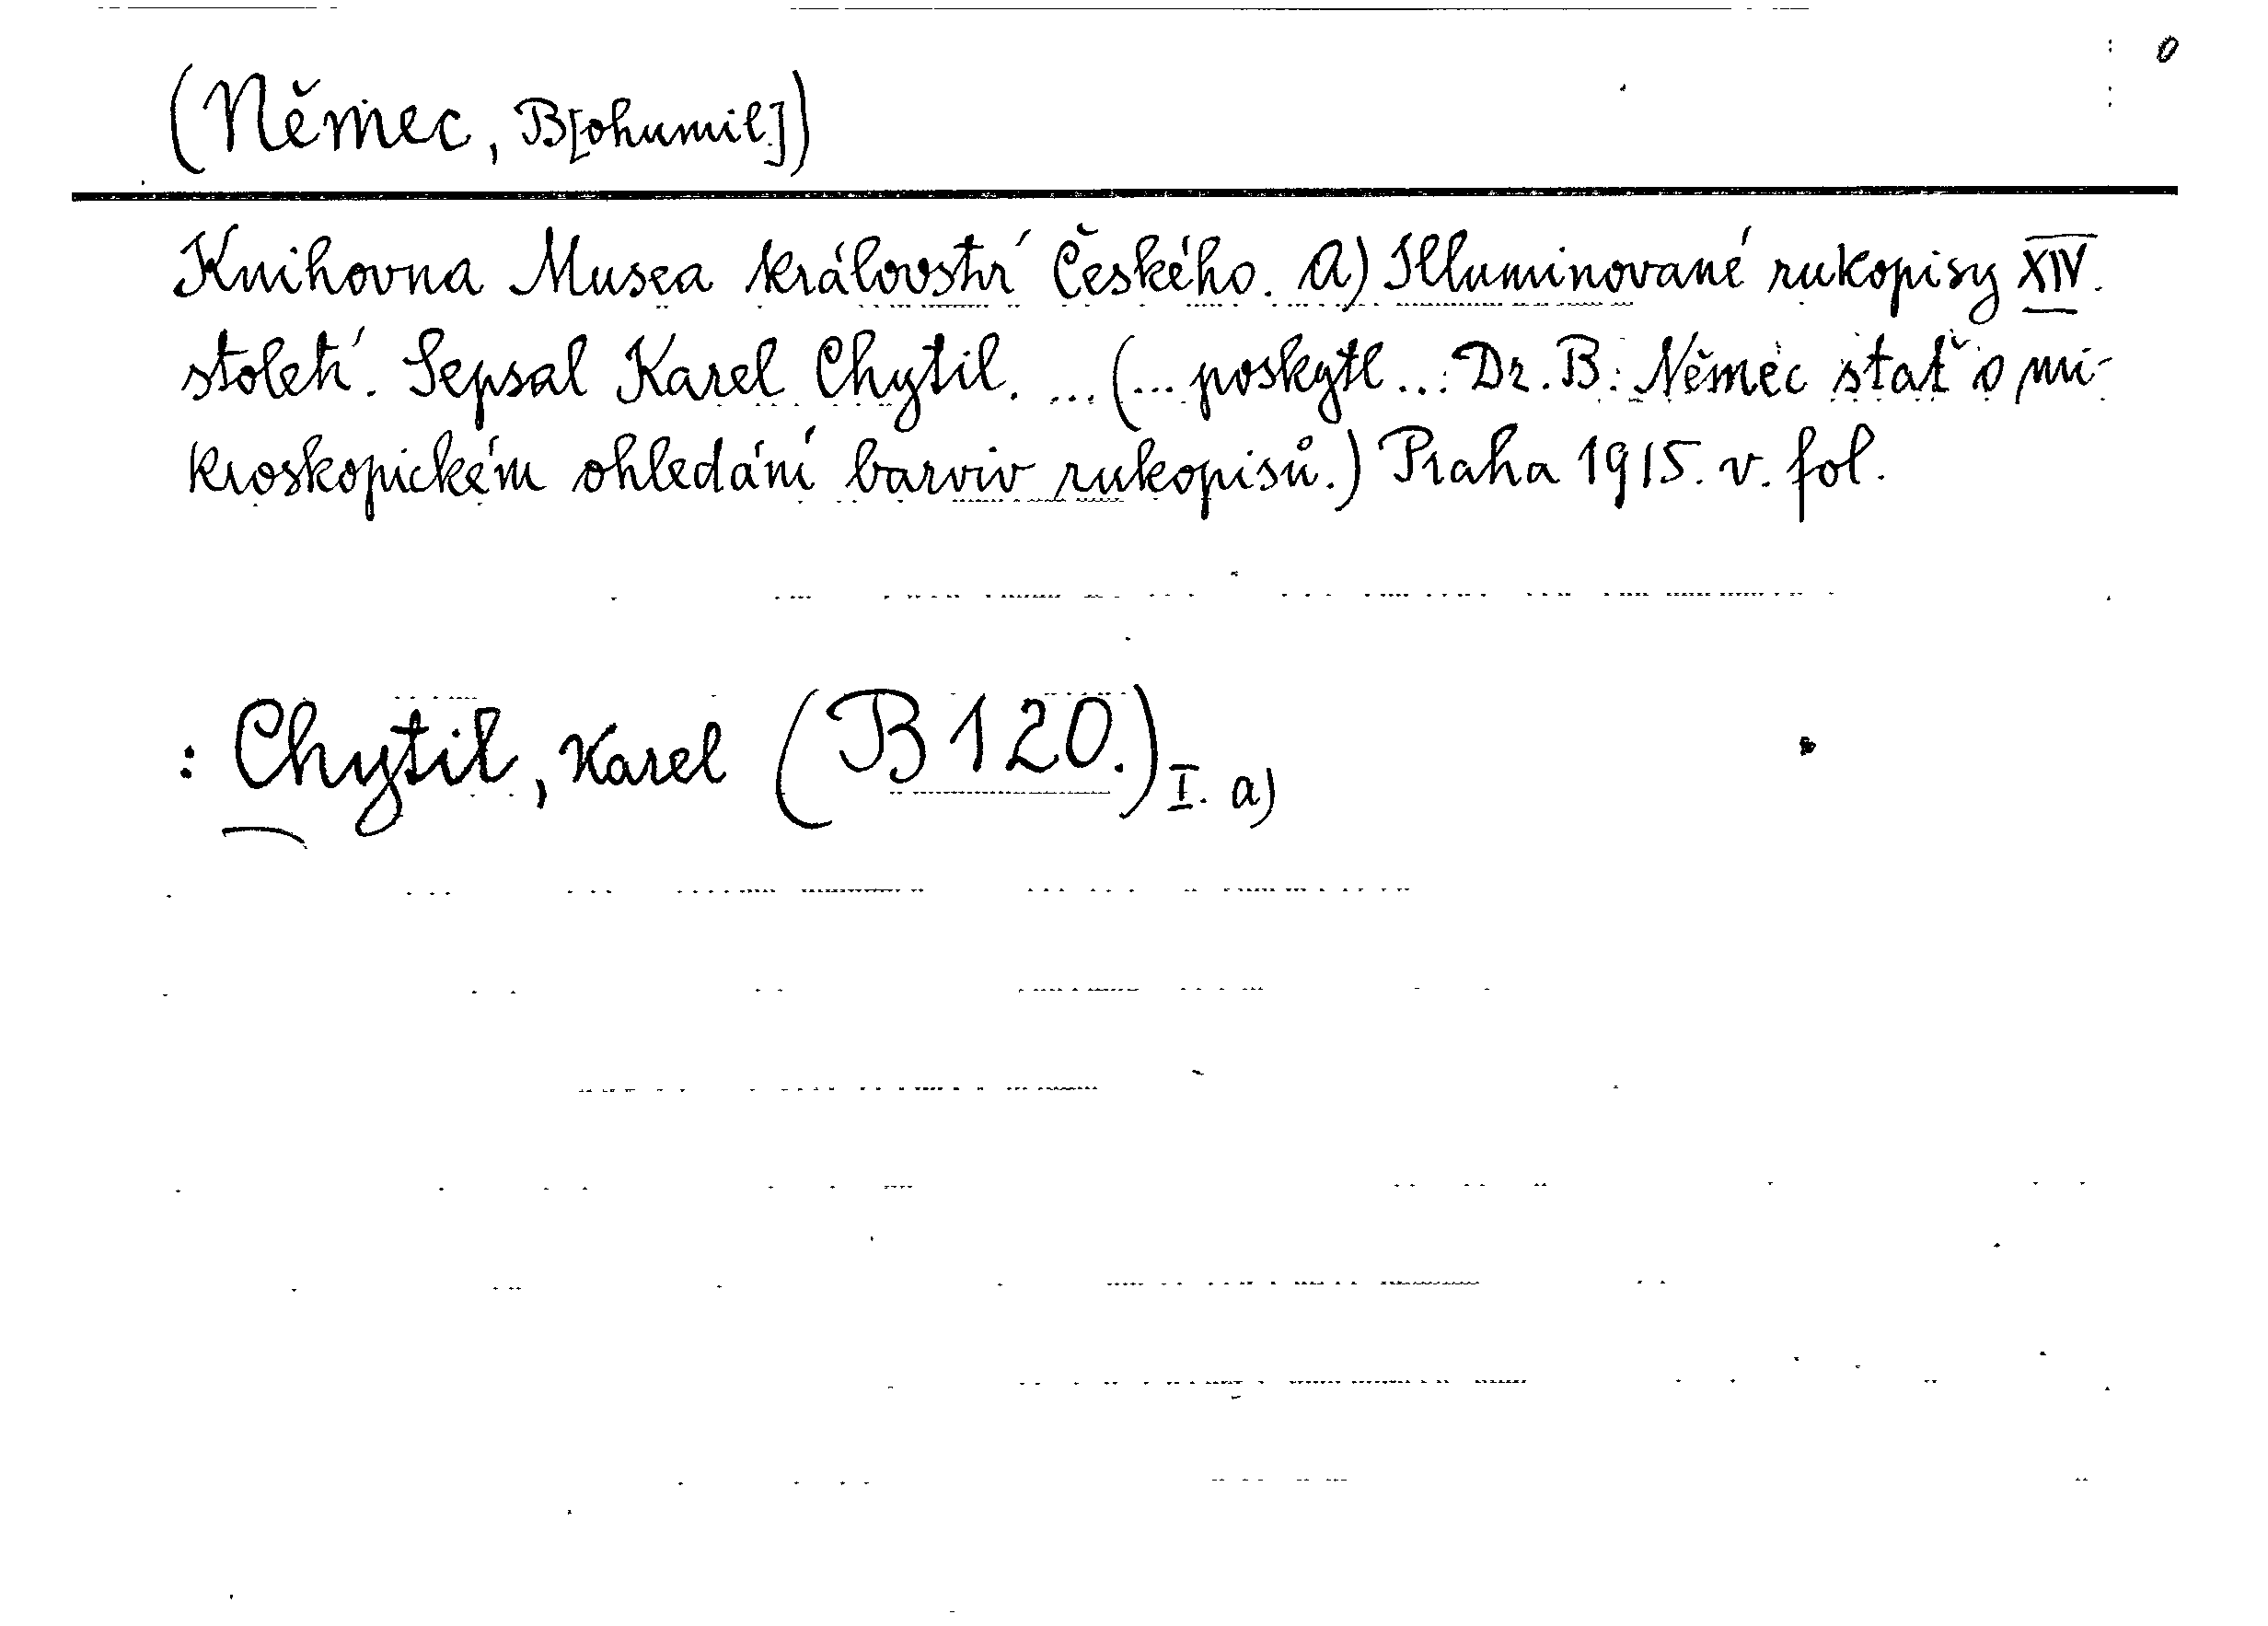 0
(Němec, B[ohumil])
Knihovna Musea království Českého. A) Illuminované rukopisy XIV.
století. Sepsal Karel Chytil. ... (... poskytl ... Dr. B. Němec stať o mi-
kroskopickém ohledání barviv rukopisů.) Praha 1915. v. fol.
: Chytil, Karel (B 120.) I. a)